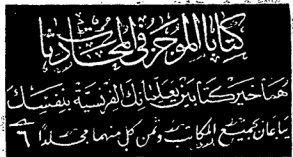 كتابا الموجز فى المحادثات
هما خير كتابين يعلمانك الفرنسية بنفسك
يباعان بجميع المكاتب وثمن كل منهما مجلدا ٦